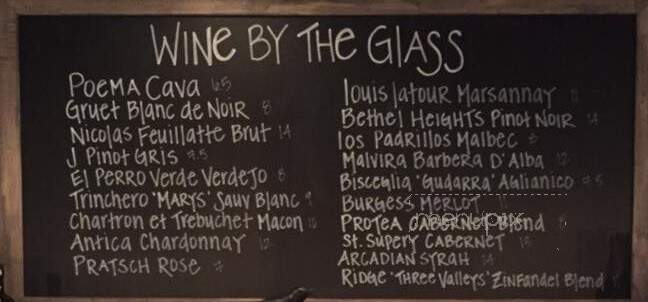 WINE BY THE GLASS
POEMA CAVA 6.5
GRUET BLANC DE NOIR 8
NICOLAS FEUILLATTE BRUT 14
J PINOT GRIS 9.5
EL PERRO VERDE VERDEJO 8
TRINCHERO "MARYS" SAUV BLANC 9
CHARTRON ET TREBUCHET MACON
ANTICA CHARDONNAY 12
PRATSCH ROSE
louis latour MARSANNAY 11
BETHEL HEIGHTS PINOT NOIR 14
los PADRILLOS MALBEC 8
MALVIRA BARBERA D'ALBA 12
BISCEGLIA "GUDARRA" AGLIANICO 9.5
BURGESS MERLOT 11
PROTEA CABERNET Blend
ST. SUPERY CABERNET
ARCADIAN SYRAH
RIDGE "THREE VAlleys" ZINFANdel Blend
menupix